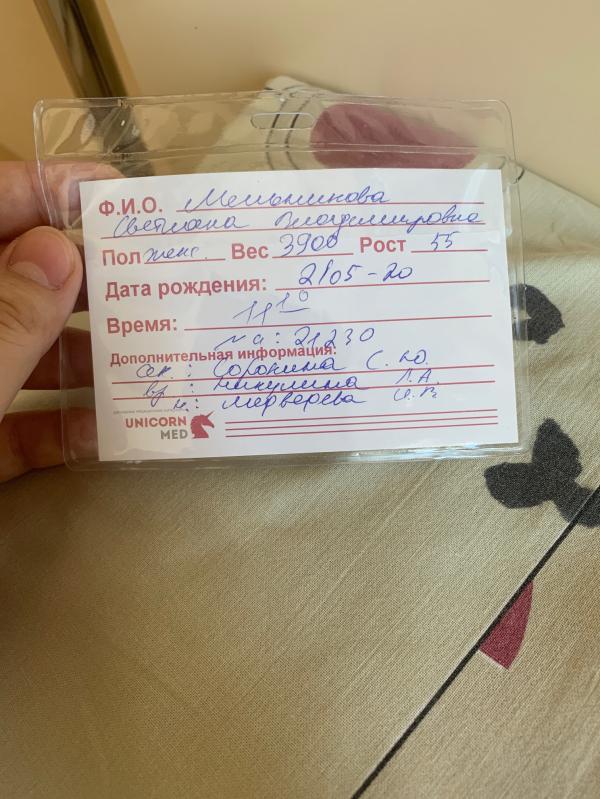 Ф.И.О. Мельникова
Светлана Владимировна
Пол женс. Вес 3900 Рост 55
Дата рождения: 21/05-20
Время: 11 10
Дополнительная информация:
Сорокина С. Ю.
вр. Никулина Л. А.
м.:
UNICORN
MED